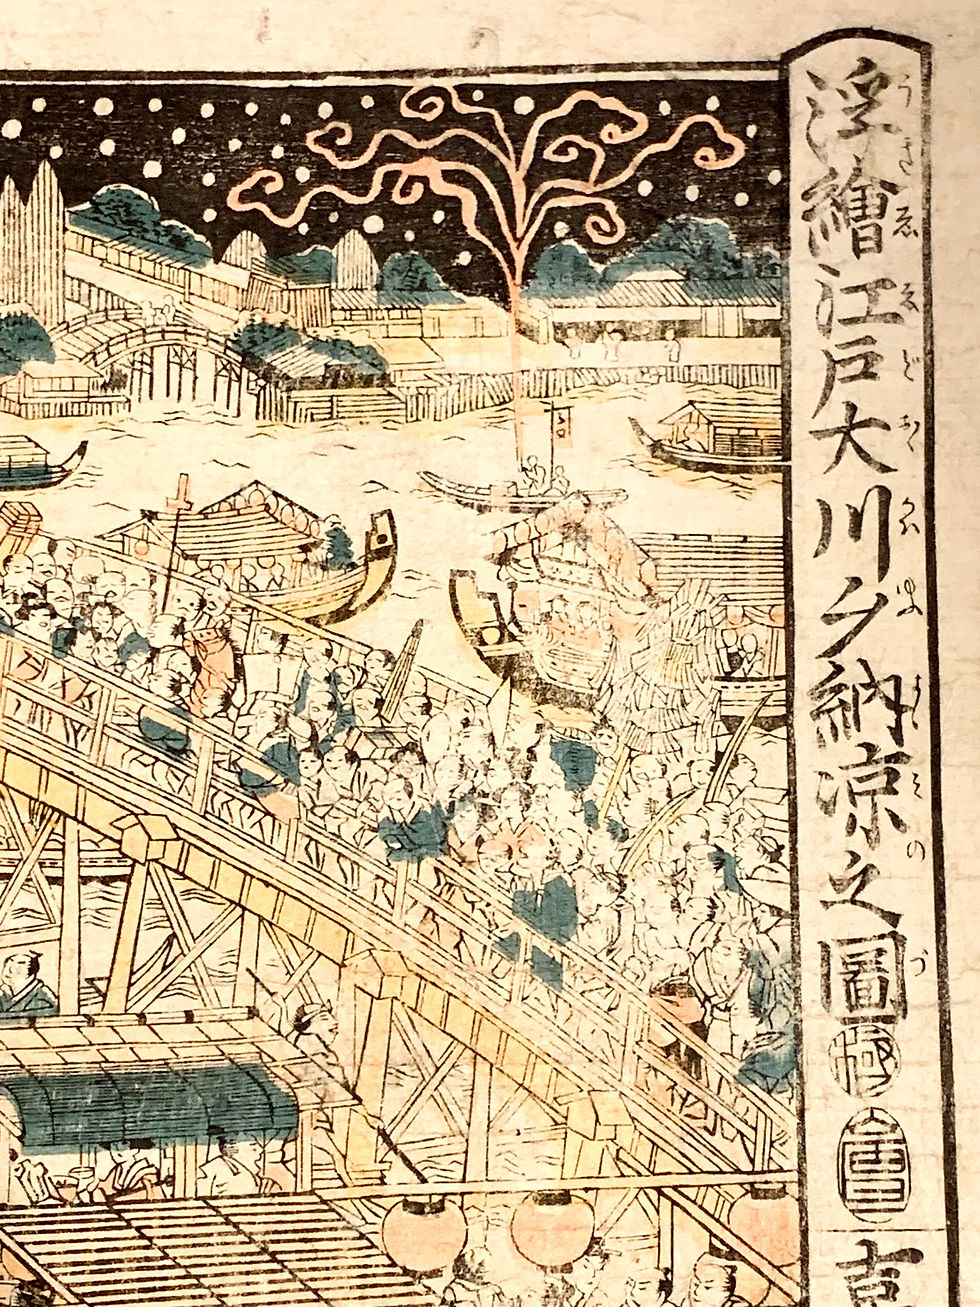 浮繪江戸大川夕納凉之圖
うきゑ ゑど おゝ かは ゆ すゞみ の づ
極